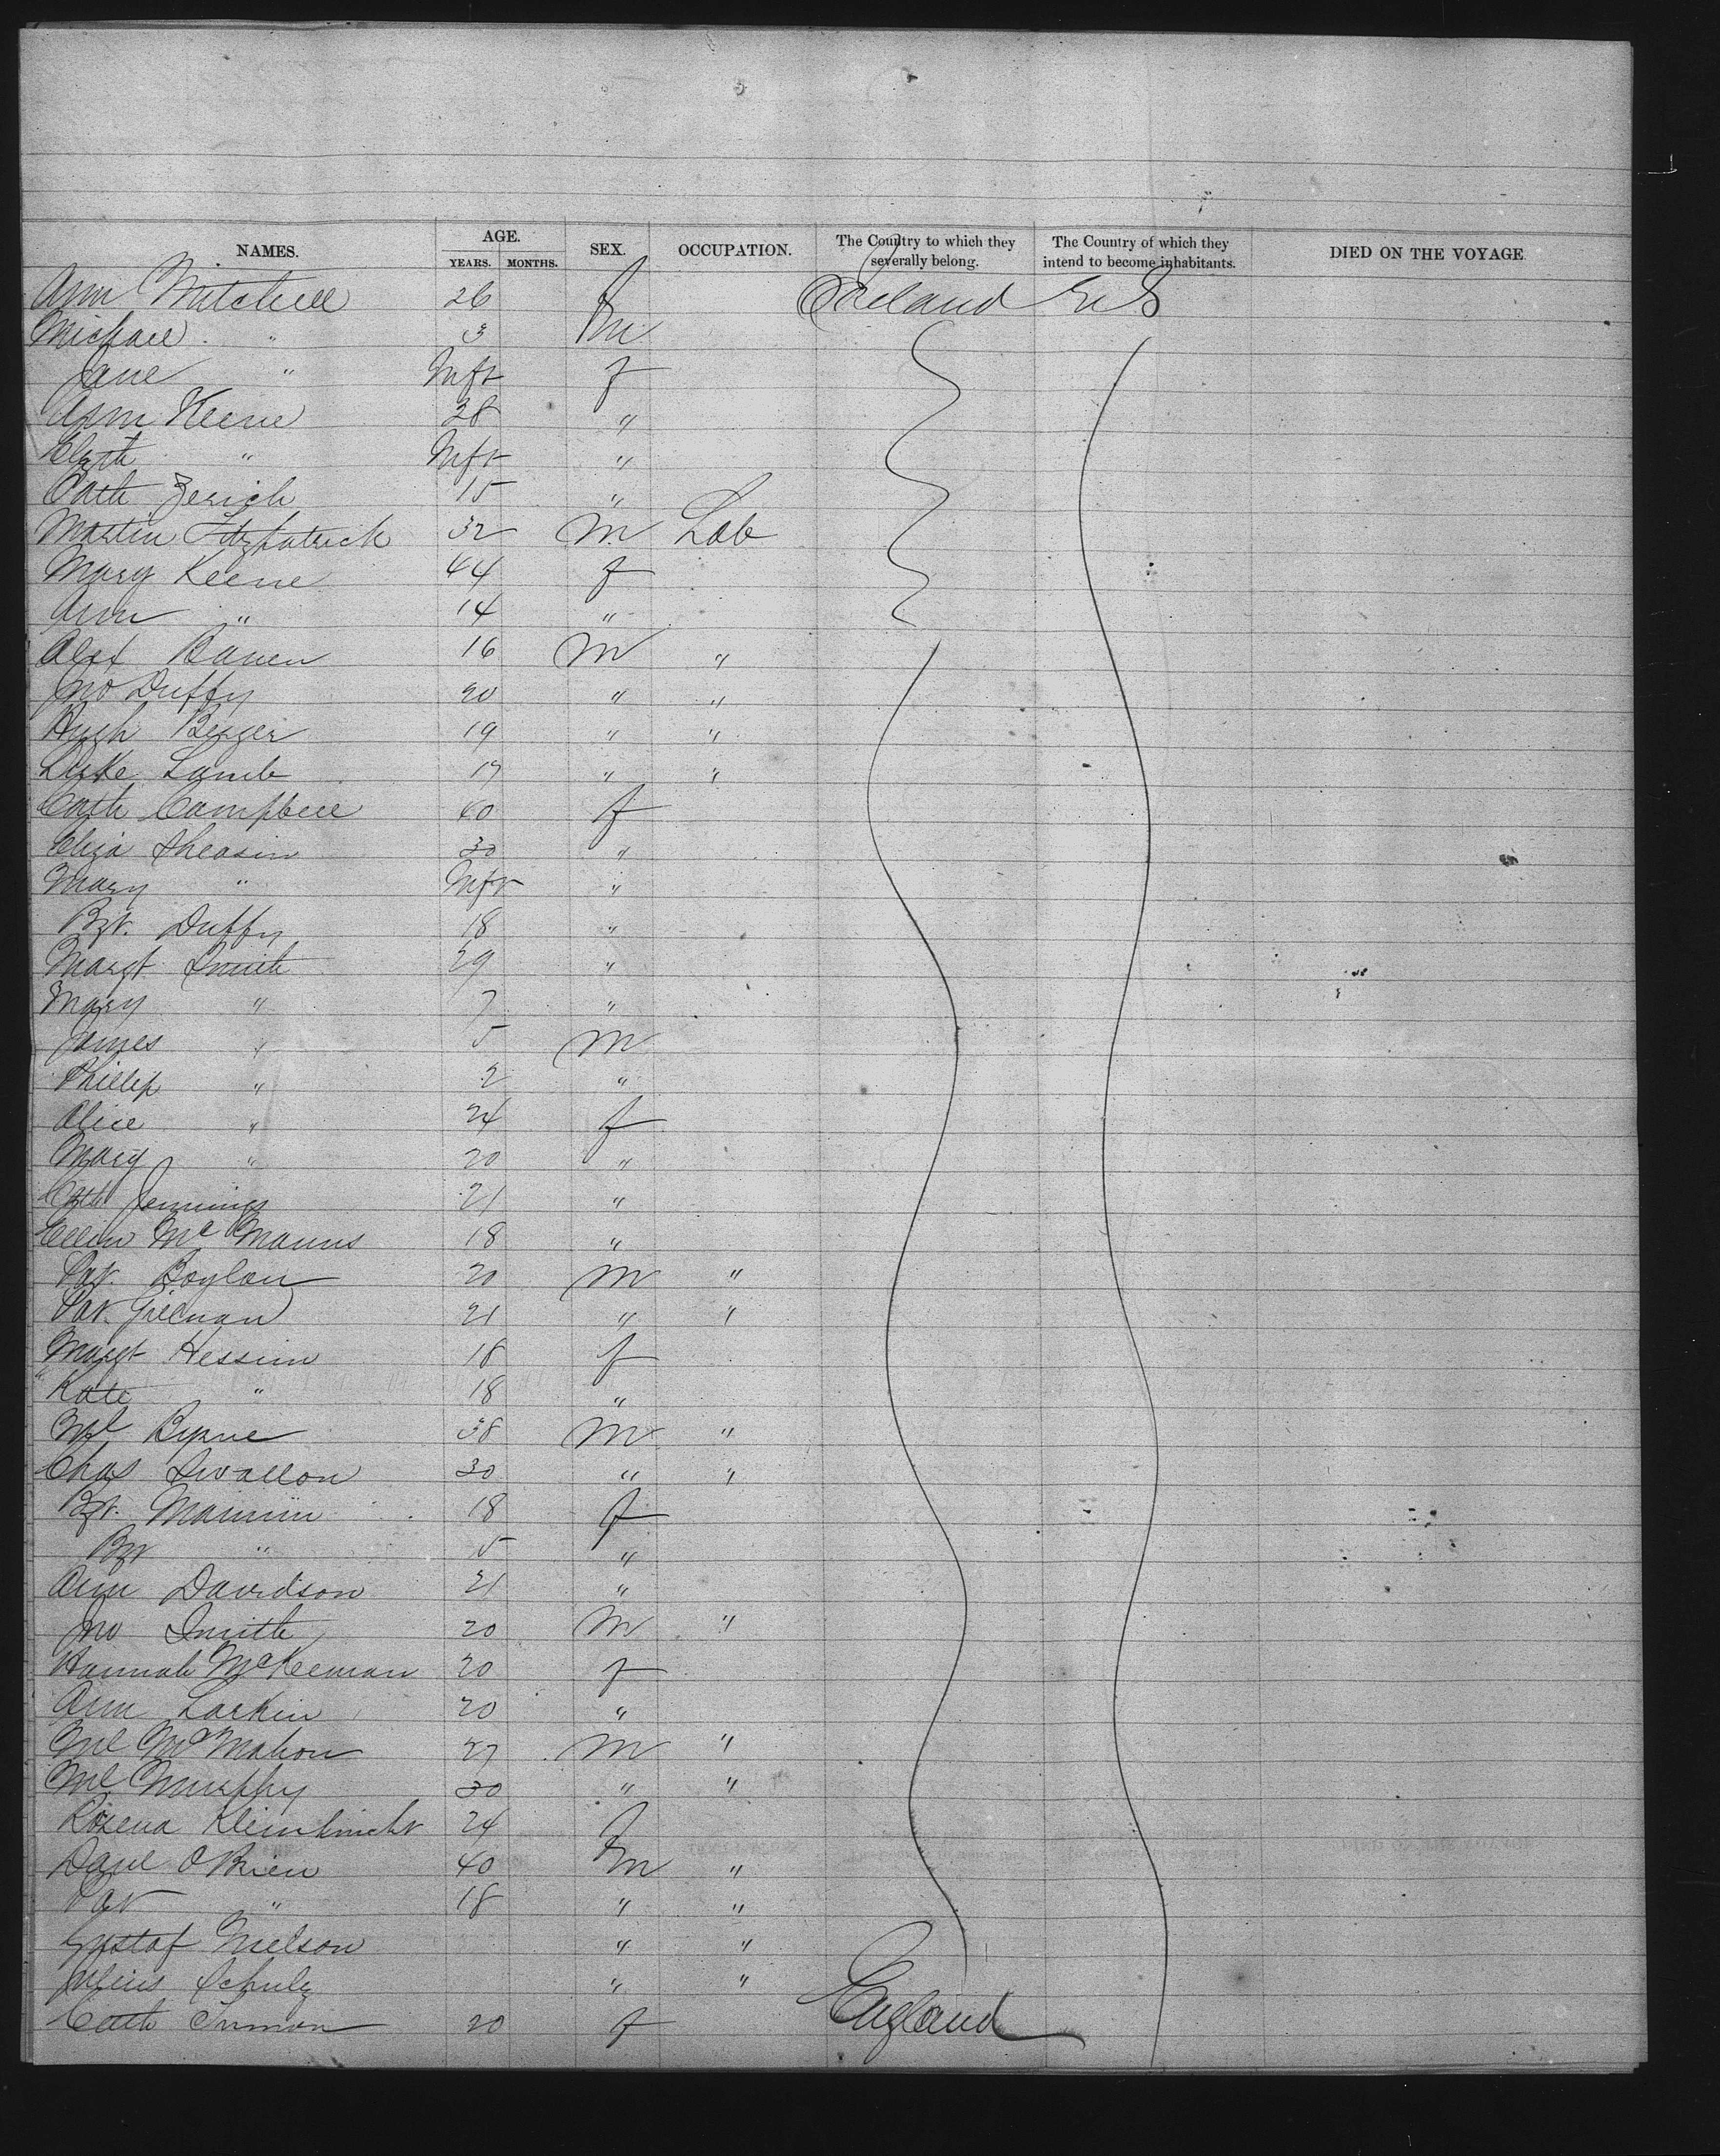 NAMES. AGE. YEARS. MONTHS. SEX. OCCUPATION. The Country to which they severally belong. The Country of which they intend to become inhabitants. DIED ON THE VOYAGE
Ann Mitchell 26 f Ireland U S
Michael " 3 m
Jane " Inft f
Ann Keene 28 "
Elizth " Inft "
Cath 15 "
Martin Fitzpatrick 32 m Lab
Mary Keene 44 f
Ann " 14 "
Alex 16 m "
Jno Duffy 20 " "
Hugh 19 " "
Luke Lamb 17 " "
Cath Campbell 40 f
Eliza Sheasin 30 "
Mary " Inft "
Bgt. Duffy 18 "
Margt Smith 29 "
Mary " 7 "
James " 5 m
Phillip " 2 "
Alice " 24 f
Mary " 20 "
Cath Jennings 21 "
Ellen McManus 18 "
Pat. Boylan 20 m "
Pat. 21 " "
Margt Hessian 18 f
" Kate " 18 "
Ml Byrne 38 m "
Chas Swallow 30 " "
Bgt. 18 f
Bgt " 5 "
Ann Davidson 21 "
Jno Smith 20 m "
Hannah McKeeman 20 f
Ann Larkin 20 "
Ml McMahon 27 m "
Ml Murphy 30 " "
Rosena Kleinknecht 24 f
Danl O'Brien 40 m "
Pat " 18 " "
Gustaf Nielson " "
Julius Schulz " "
Cath 20 f England